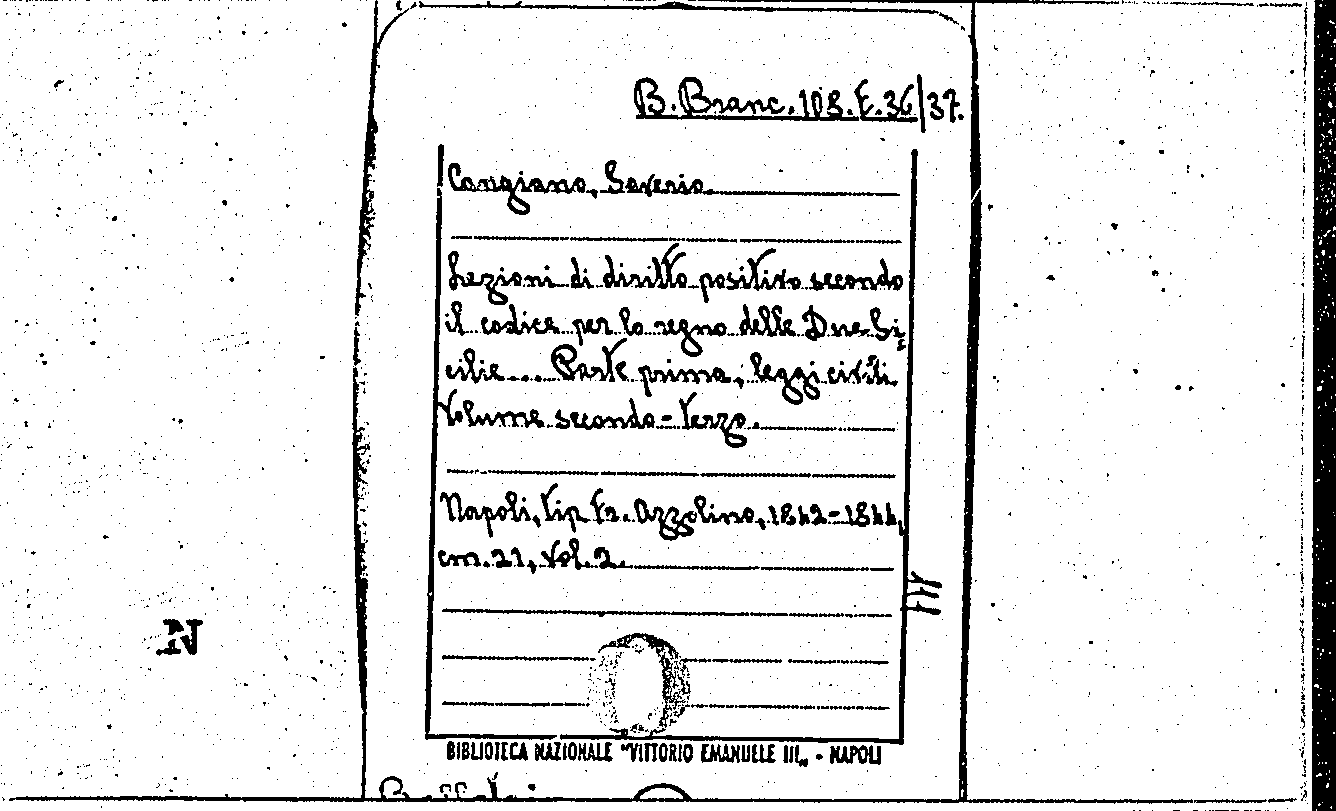 B. Branc. 108. E. 36/37.
Cangiano, Saverio
Lezioni di diritto positivo secondo
il codice per lo regno delle Due Si=
cilie... Parte prima, leggi civili
Volume secondo - terzo.
Napoli, tip. Fr. Azzolino, 1842-1844,
cm. 21, vol. 2.
N
BIBLIOTECA NAZIONALE "VITTORIO EMANUELE III„ - NAPOLI